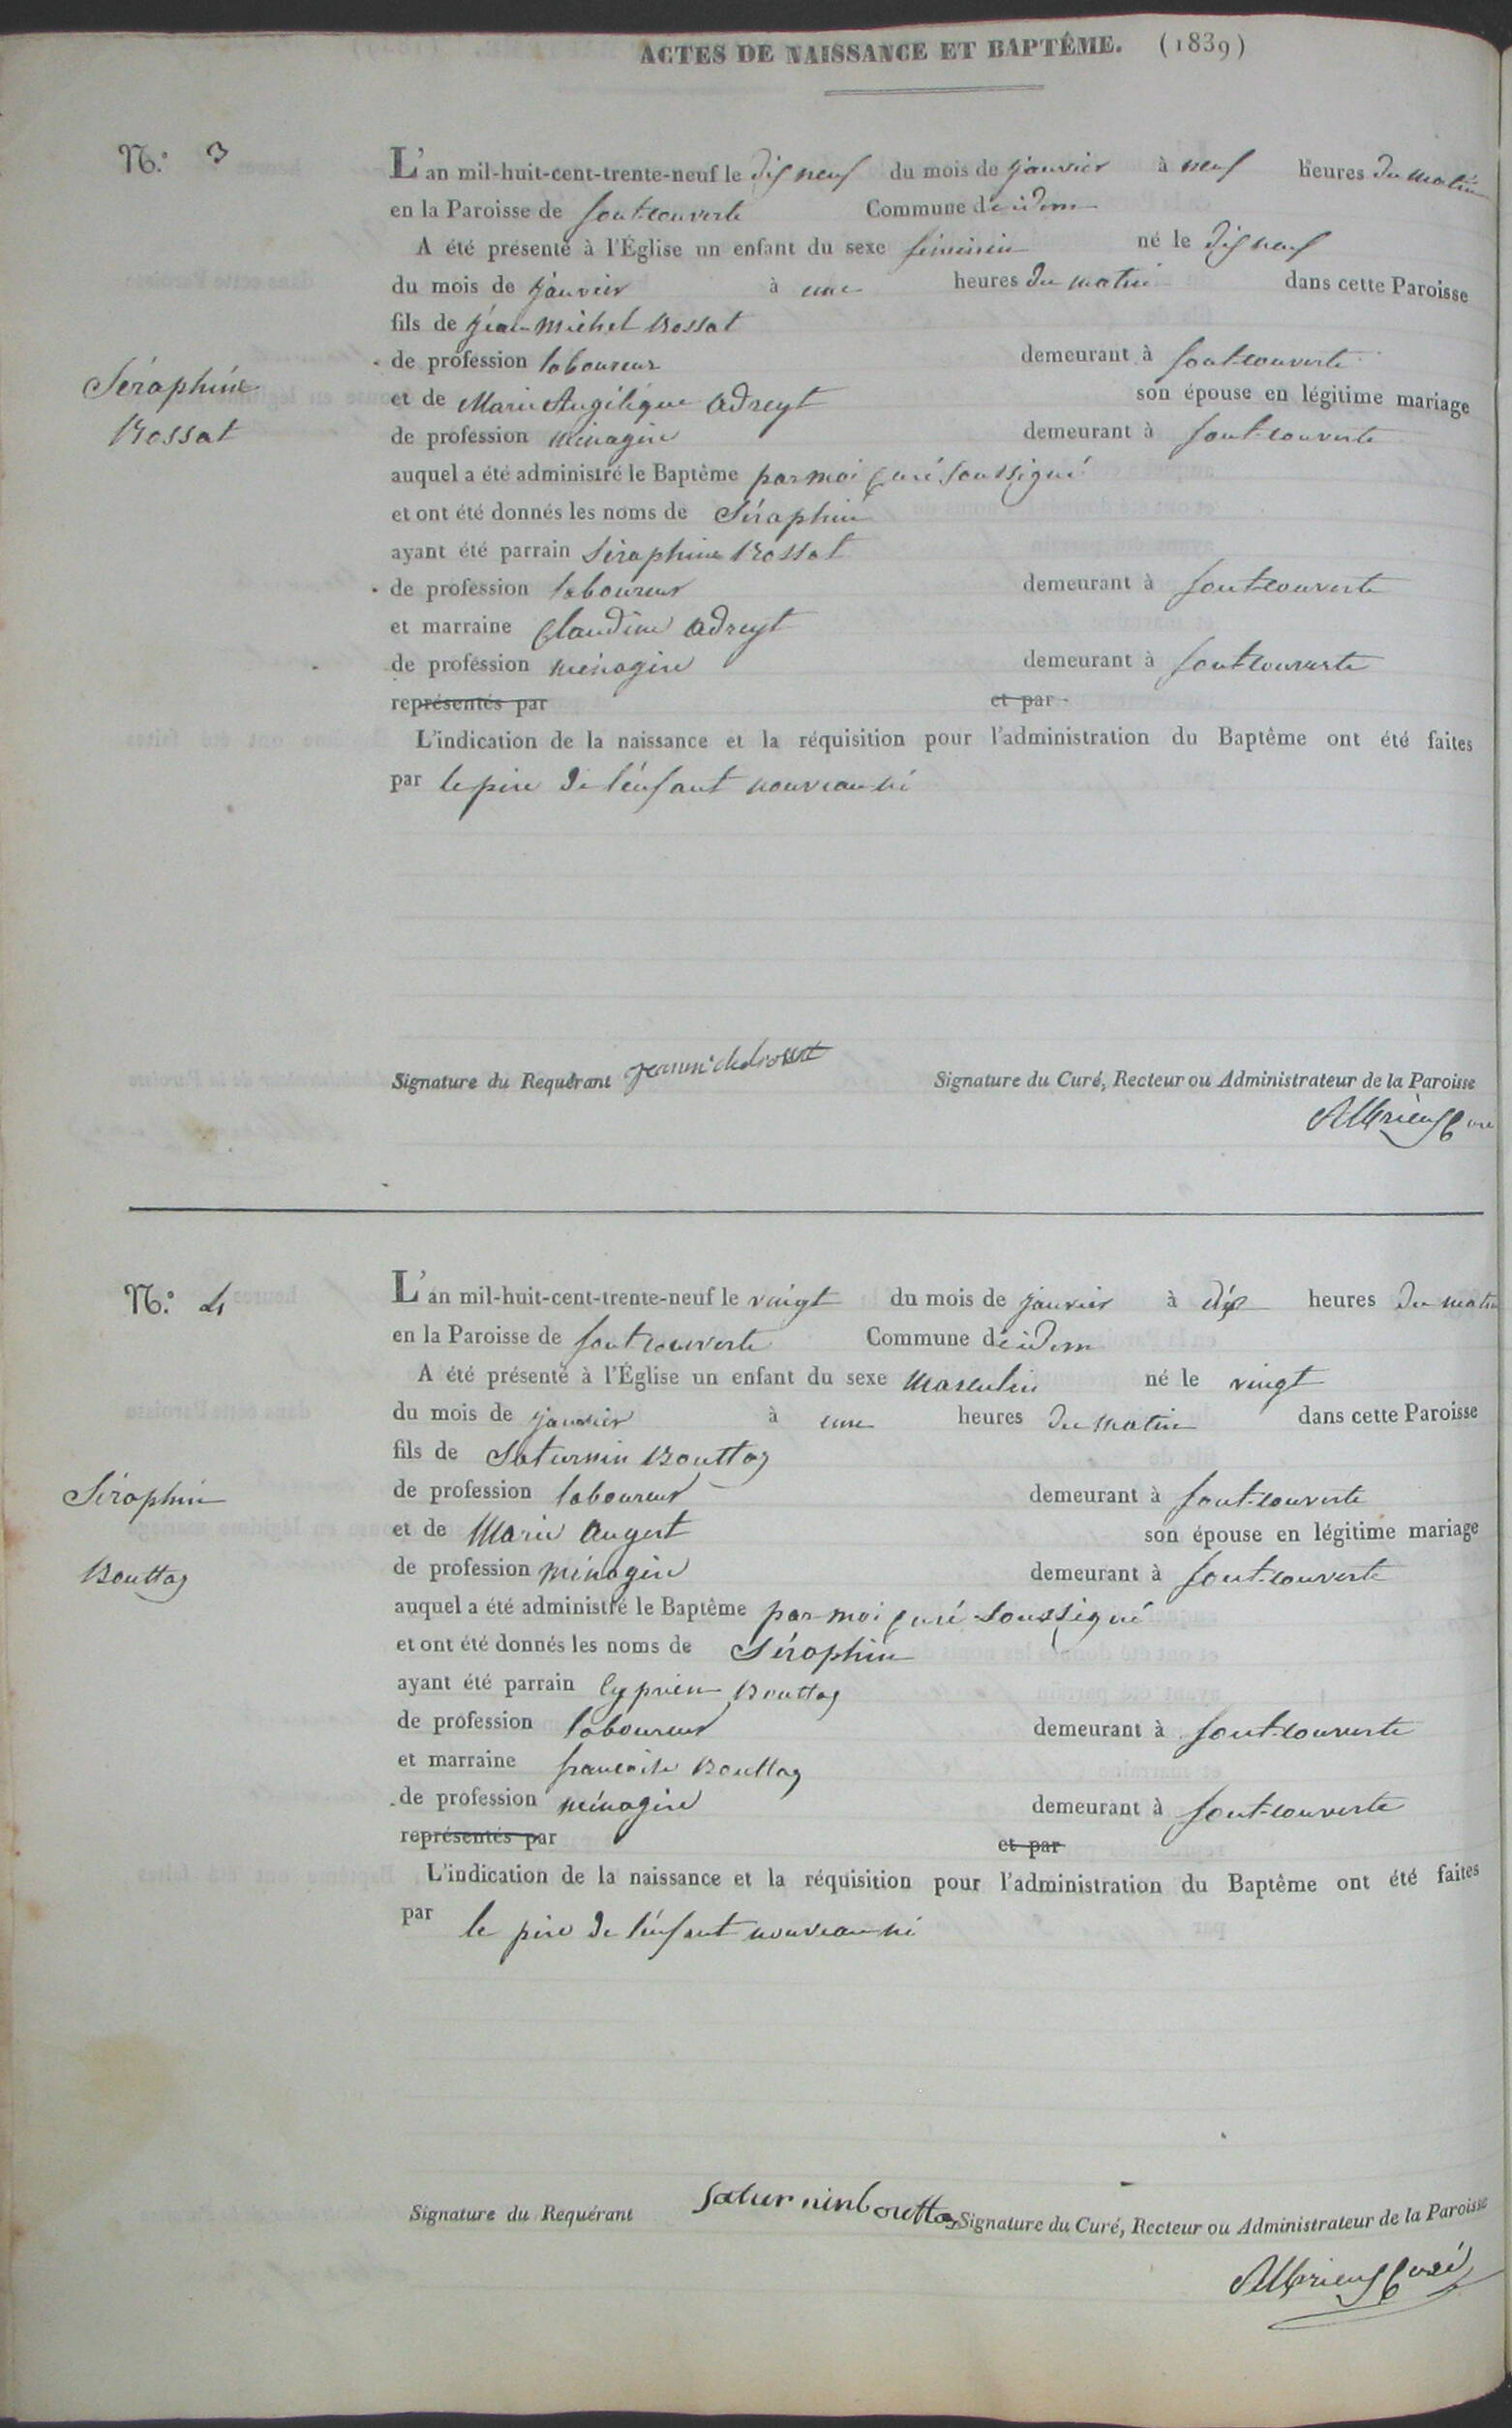 ACTES DE NAISSANCE ET BAPTÊME. (1839)
N.º 3
L'an mil-huit-cent-trente-neuf le dix neuf du mois de janvier à neuf heures du matin
en la Paroisse de fontcouverte Commune de idem
A été présenté à l'Église un enfant du sexe féminin né le dix neuf
du mois de janvier à une heures du matin dans cette Paroisse
fils de Jean Michel Rossat
de profession laboureur demeurant à fontcouverte
Séraphine
et de Marie Angélique Adreyt son épouse en légitime mariage
Rossat
de profession ménagère demeurant à fontcouverte
auquel a été administré le Baptême par moi Curé soussigné
et ont été donnés les noms de Séraphine
ayant été parrain Séraphin Rossat
de profession laboureur demeurant à fontcouverte
et marraine Claudine Adreyt
de profession ménagère demeurant à fontcouverte
représentés par et par
L'indication de la naissance et la réquisition pour l'administration du Baptême ont été faites
par le père de l'enfant nouveau né
Signature du Requérant Signature du Curé, Recteur ou Administrateur de la Paroisse
Curé
N.º 4
L'an mil-huit-cent-trente-neuf le vingt du mois de janvier à dix heures du matin
en la Paroisse de fontcouverte Commune de idem
A été présenté à l'Église un enfant du sexe masculin né le vingt
du mois de janvier à une heures du matin dans cette Paroisse
fils de Saturnin Bouttaz
Séraphin
de profession laboureur demeurant à fontcouverte
et de Marie Augert son épouse en légitime mariage
Bouttaz
de profession ménagère demeurant à fontcouverte
auquel a été administré le Baptême par moi Curé soussigné
et ont été donnés les noms de Séraphin
ayant été parrain Cyprien Bouttaz
de profession laboureur demeurant à fontcouverte
et marraine françoise Bouttaz
de profession ménagère demeurant à fontcouverte
représentés par et par
L'indication de la naissance et la réquisition pour l'administration du Baptême ont été faites
par le père de l'enfant nouveau né
Signature du Requérant saturnin bouttaz Signature du Curé, Recteur ou Administrateur de la Paroisse
Curé